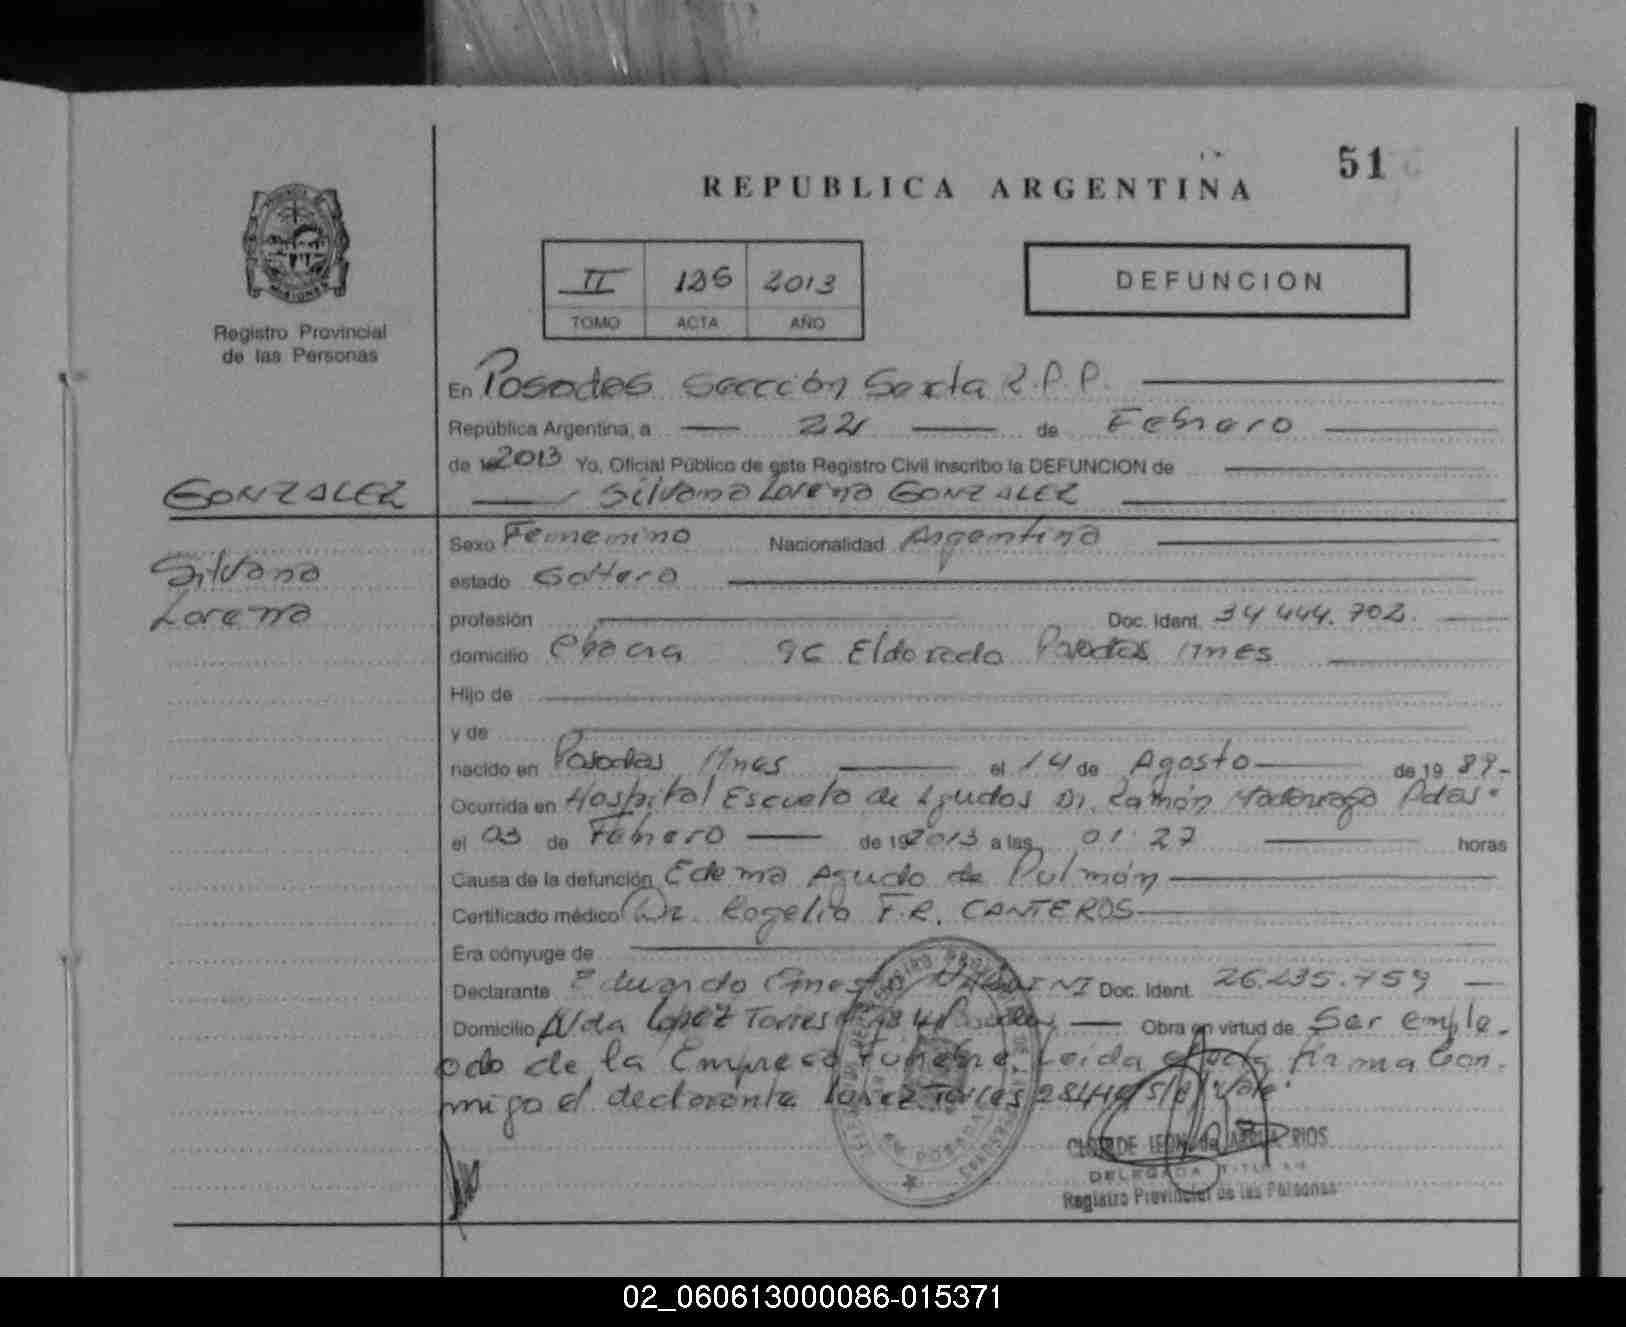 51
REPUBLICA ARGENTINA
MISIONES
Registro Provincial
de las Personas
II 126 2013
TOMO ACTA AÑO
DEFUNCION
En Posadas Sección Sexta R.P.P.
República Argentina, a 22 de Febrero
de 2013 Yo, Oficial Público de este Registro Civil inscribo la DEFUNCION de
GONZALEZ
Silvana Lorena GONZALEZ
Silvana
Lorena
Sexo Femenino Nacionalidad Argentina
estado Soltera
profesión Doc. Ident. 34 444. 702.
domicilio Chacra 96 Eldorado Posadas Mnes
Hijo de
y de
nacido en Posadas Mnes el 14 de Agosto de 19 89-
Ocurrida en Hospital Escuela de Agudos Dr. Ramón Madariaga Pdas.
el 03 de Febrero de 19 2013 a las 01 27 horas
Causa de la defunción Edema Agudo de Pulmón
Certificado médico Dr. Rogelio F.R. CANTEROS
Era cónyuge de
Declarante Eduardo Doc. Ident. 26.235.759
Domicilio Avda Lopez Torres Obra en virtud de Ser emple-
ado de la Empresa Funebre. Leida firma Con-
migo el declarante Lopez Torres Vale.
RIOS
DELEGADA TITULAR
Registro Provincial de las Personas
02_060613000086-015371